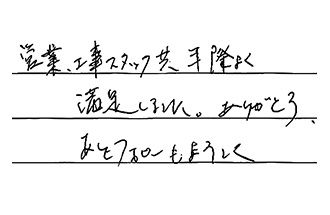 営業、工事スタッフ共、手際よく
満足しました。ありがとう、
あとフォローもよろしく